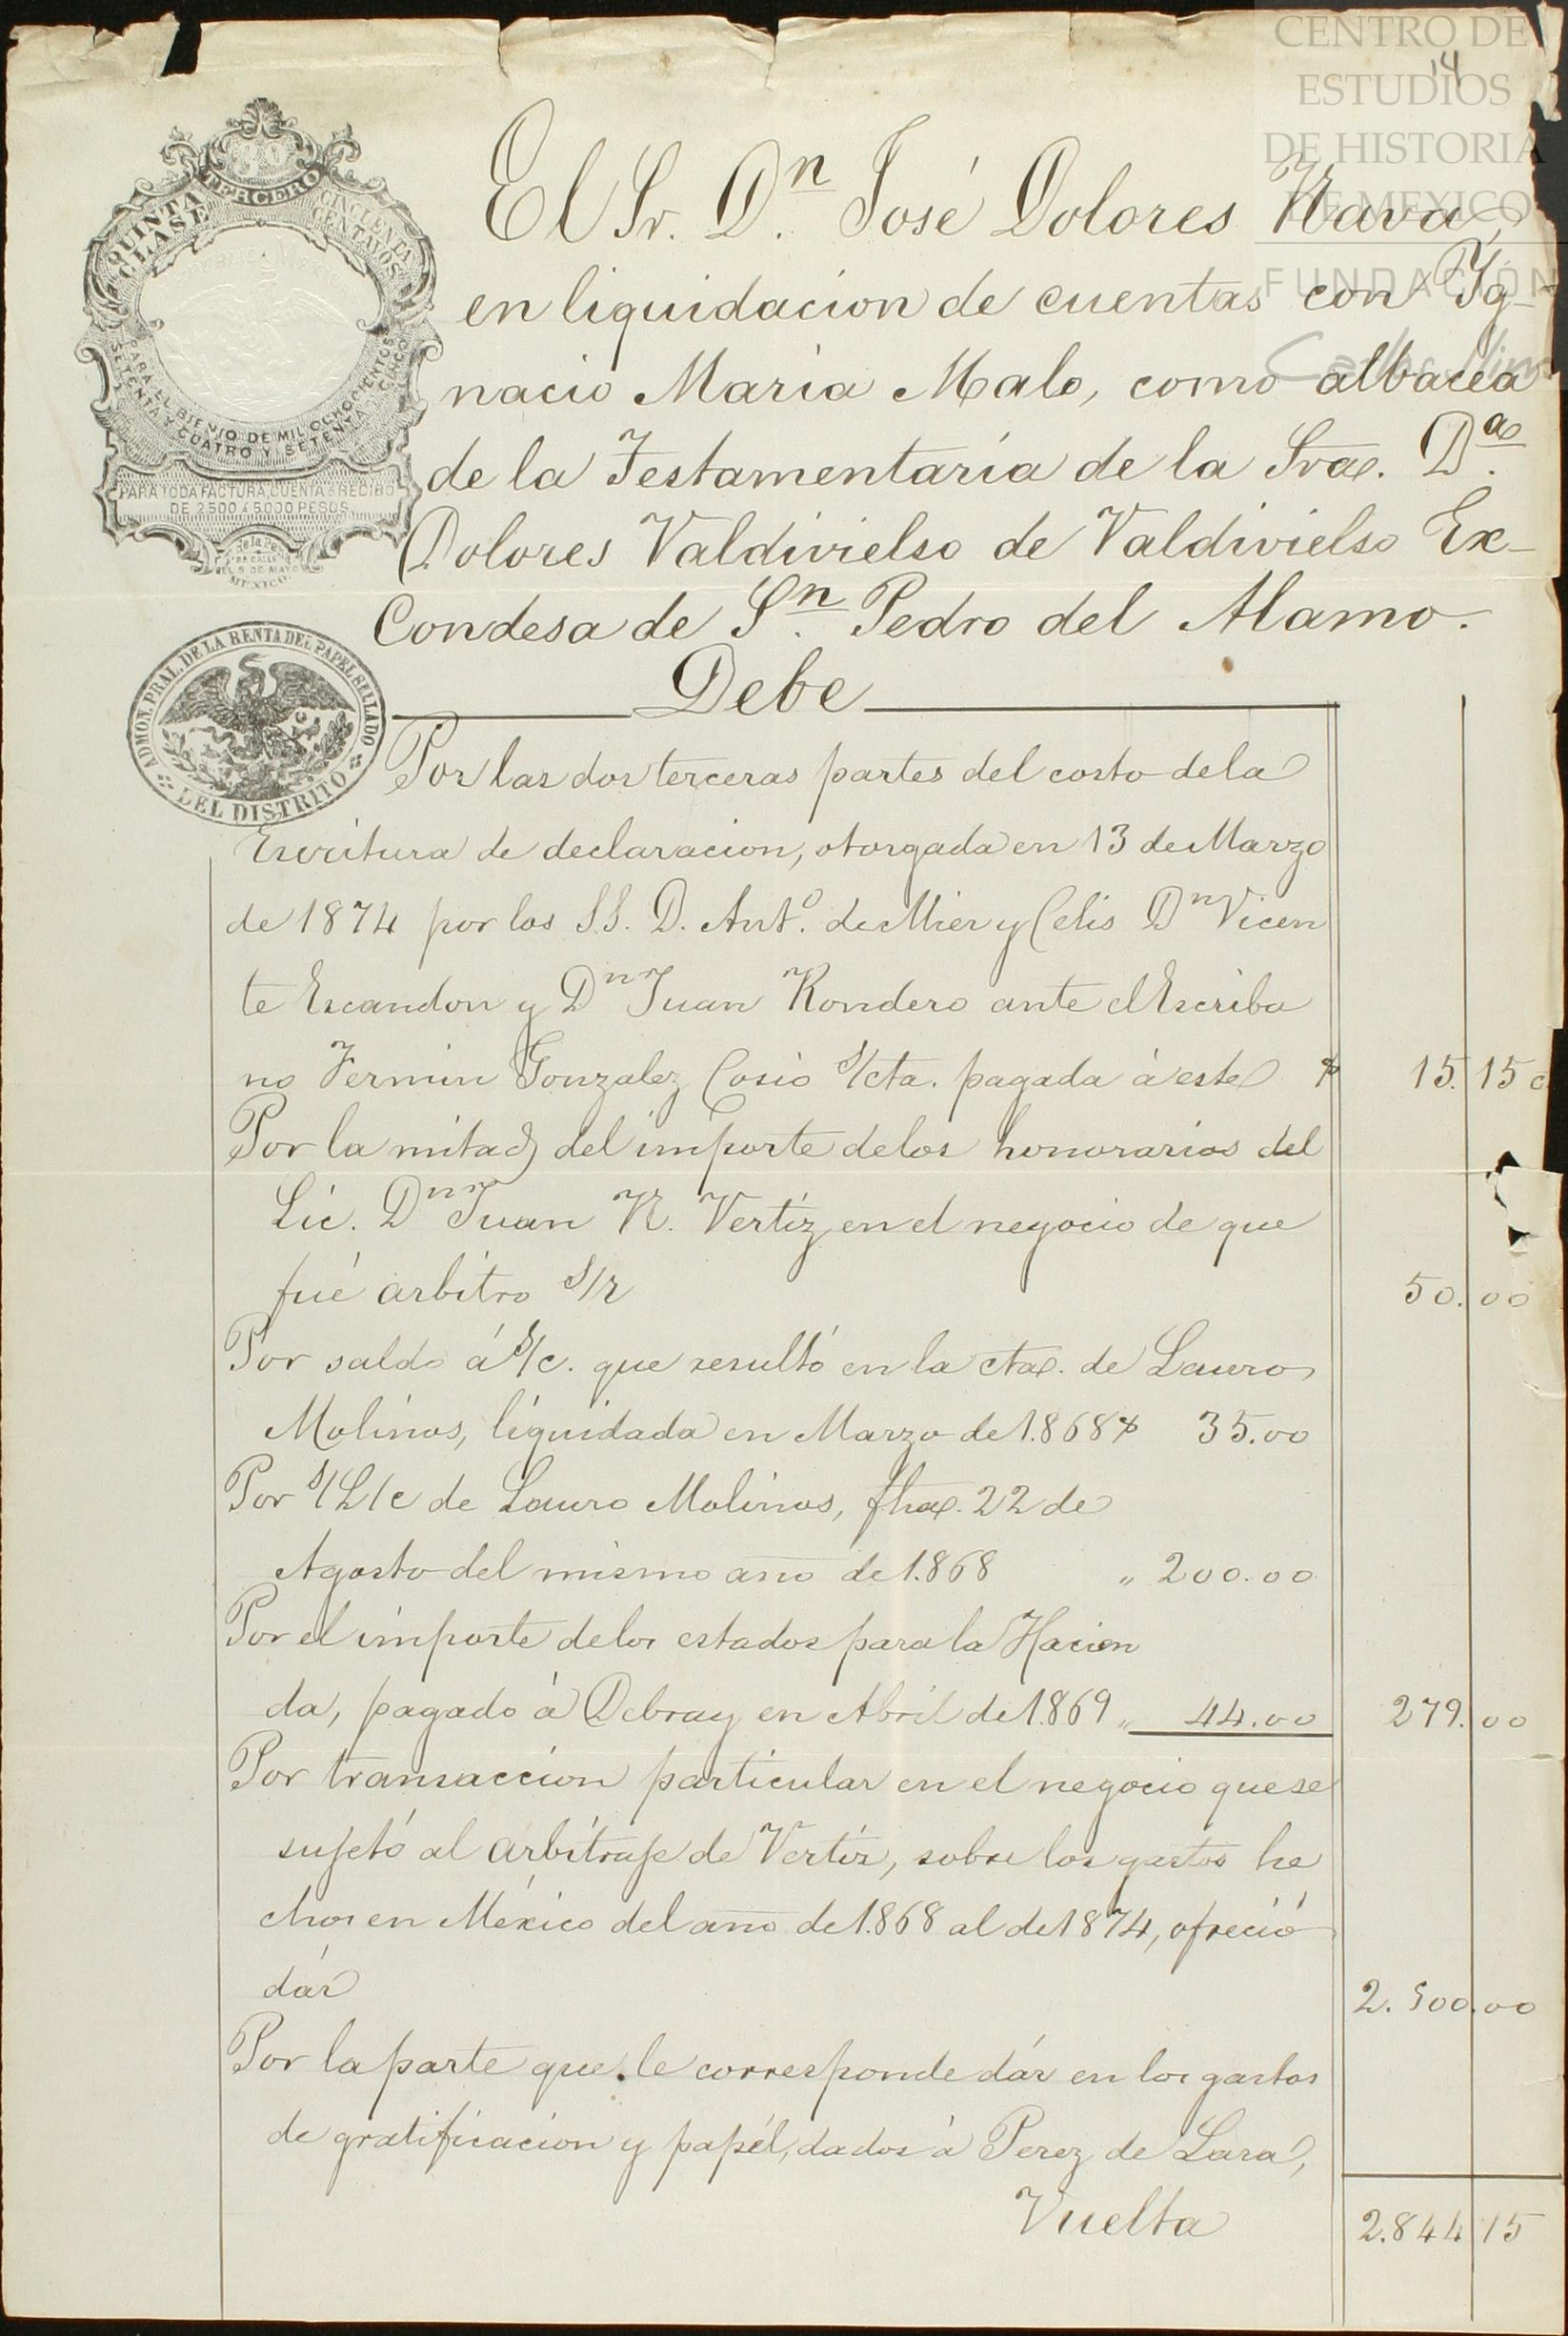 CENTRO DE
ESTUDIOS
DE HISTORIA
DE MEXICO
FUNDACIÓN
14
TERCERO
QUINTA CLASE
CINCUENTA CENTAVOS
PARA EL BIENIO DE MIL OCHOCIENTOS
SETENTA Y CUATRO Y SETENTA Y CINCO
PARA TODA FACTURA, CUENTA ó RECIBO
DE 2500 á 5000 PESOS
MEXICO.
El Sr. Dn. José Dolores Nava,
en liquidacion de cuentas con Yg-
nacio Maria Malo, como albacea
de la Testamentaría de la Sra. Da.
Dolores Valdivielso de Valdivielso Ex-
Condesa de Sn. Pedro del Alamo.
ADMON. PRAL. DE LA RENTA DEL PAPEL SELLADO
DEL DISTRITO
Debe
Por las dos terceras partes del costo de la
Escritura de declaracion, otorgada en 13 de Marzo
de 1874 por los S.S. D. Anto. de Mier y Celis Dn Vicen
te Escandon y Dn Juan Rondero ante el Escriba
no Fermin Gonzalez Cosio s/cta. pagada á este $ 15.15 c
Por la mitad del importe de los honorarios del
Lic. Dn Juan N. Vertiz en el negocio de que
fué arbitro s/r 50.00
Por saldo á s/c. que resultó en la cta. de Lauro
Molinos, liquidada en Marzo de 1.868 $ 35.00
Por s/L/c de Lauro Molinos, fha. 22 de
Agosto del mismo año de 1.868 " 200.00
Por el importe de los estados para la Hacien
da, pagado á Debray en Abril de 1.869 " 44.00 279.00
Por transaccion particular en el negocio que se
sujetó al arbitraje de Vertiz, sobre los gastos he
chos en México del año de 1.868 al de 1874, ofreció
dár 2.500.00
Por la parte que le corresponde dár en los gastos
de gratificacion y papél, dados á Perez de Lara,
Vuelta 2.844 15